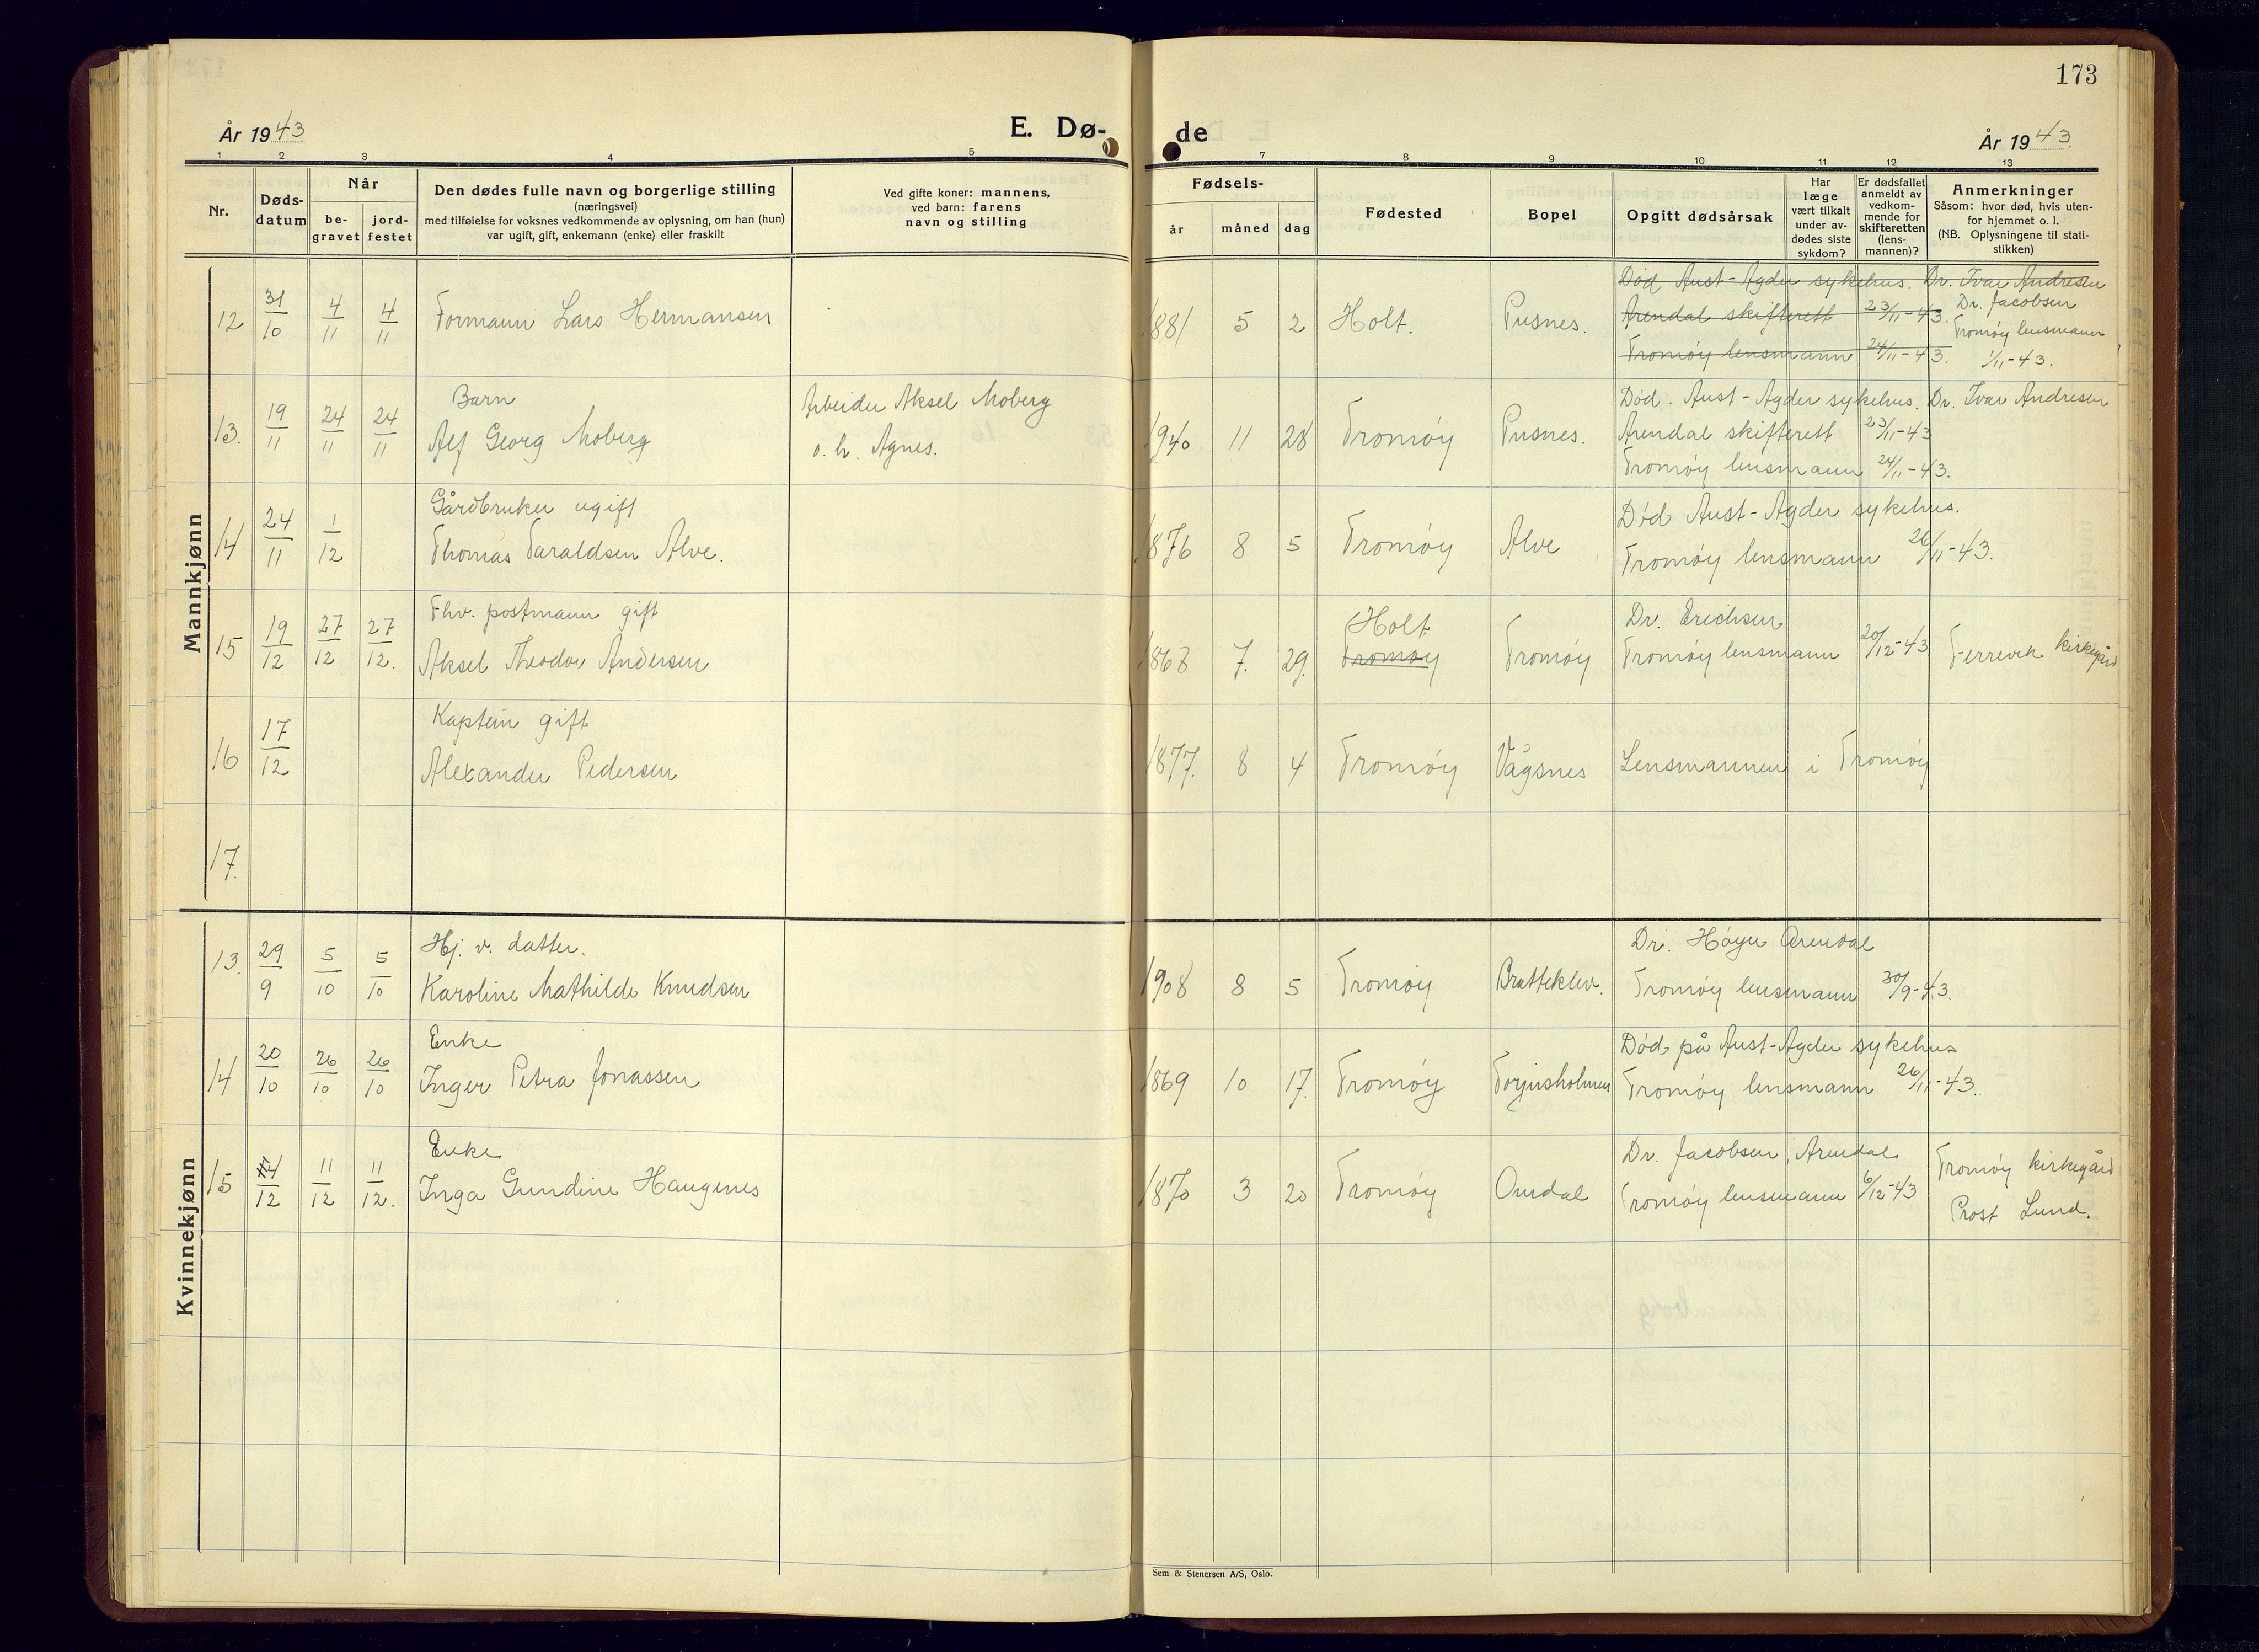 173
År 1943
E. Dø-
de
År 1943.
1 2 3 4 5 7 8 9 10 11 12 13
Nr.
Døds-
datum
Når
be-
gravet
jord-
festet
Den dødes fulle navn og borgerlige stilling
(næringsvei)
med tilføielse for voksnes vedkommende av oplysning, om han (hun)
var ugift, gift, enkemann (enke) eller fraskilt
Ved gifte koner: mannens,
ved barn: farens
navn og stilling
Fødsels-
år måned dag
Fødested
Bopel
Opgitt dødsårsak
Har
læge
vært tilkalt
under av-
dødes siste
sykdom?
Er dødsfallet
anmeldt av
vedkom-
mende for
skifteretten
(lens-
mannen)?
Anmerkninger
Såsom: hvor død, hvis uten-
for hjemmet o. l.
(NB. Oplysningene til stati-
stikken)
Mannkjønn
12 31/10 4/11 4/11 Formann Lars Hermansen 1881 5 2 Holt. Pusnes.
Død Aust-Agder sykehus. Dr. Ivar Andresen
Arendal skifterett 23/11-43. Dr. Jacobsen
Tromøy lensmann
Tromøy lensmann 24/11-43. 1/11-43.
Barn
13. 19/11 24/11 24/11 Alf Georg Moberg
Arbeider Aksel Moberg
o. h. Agnes.
1940 11 28 Tromøy Pusnes.
Død. Aust-Agder sykehus. Dr. Ivar Andresen
Arendal skifterett 23/11-43
Tromøy lensmann 24/11-43.
Gårdbruker ugift
14 24/11 1/12 Thomas Taraldsen Alve. 1876 8 5 Tromøy Alve
Død Aust-Agder sykehus.
Tromøy lensmann 26/11-43.
Fhv. postmann gift
15 19/12 27/12 27/12. Aksel Theodor Andersen 1868 7. 29. Holt
Tromøy Tromøy
Dr. Erichsen
Tromøy lensmann 20/12-43 Færvik kirkegård
Kaptein gift
16 17/12 Alexander Pedersen 1877. 8 4 Tromøy Vågsnes Lensmannen i Tromøy
17.
Kvinnekjønn
Hj. v. datter.
13. 29/9 5/10 5/10 Karoline Mathilde Knudsen 1908 8 5 Tromøy Bratteklev.
Dr. Høyer Arendal
Tromøy lensmann 30/9-43.
Enke
14 20/10 26/10 26/10 Inger Petra Jonassen 1869 10 17. Tromøy Torjusholmen
Død på Aust-Agder sykehus
Tromøy lensmann 26/11-43.
Enke
15 4/12 11/12 11/12. Inga Gundine Haugenes 1870 3 20 Tromøy Omdal
Dr. Jacobsen, Arendal
Tromøy lensmann 6/12-43
Tromøy kirkegård
Prost Lund.
Sem & Stenersen A/S, Oslo.